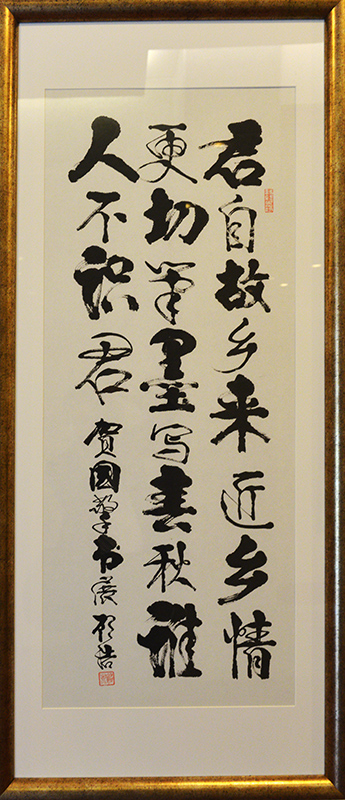 君自故乡来近乡情
更切笔墨写春秋谁
人不识君
贺国擎书展